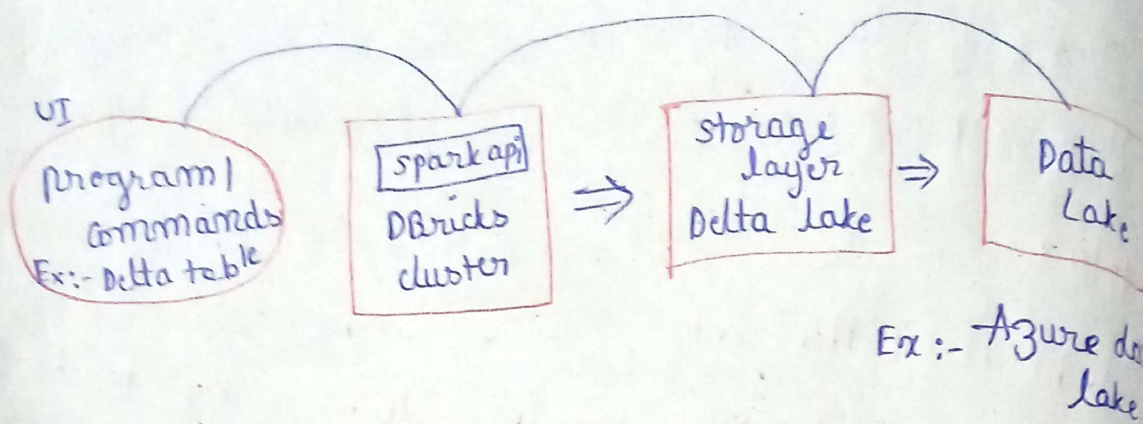 UI
program/
commands
Ex:- Delta table
spark api
DBricks
cluster
storage
layer
Delta lake
Data
Lake
Ex:- Azure
lake